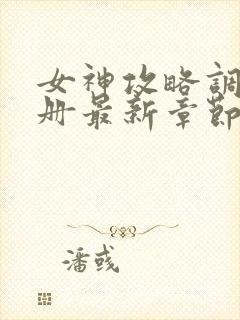 女神攻略調
册最新章節
潘彧